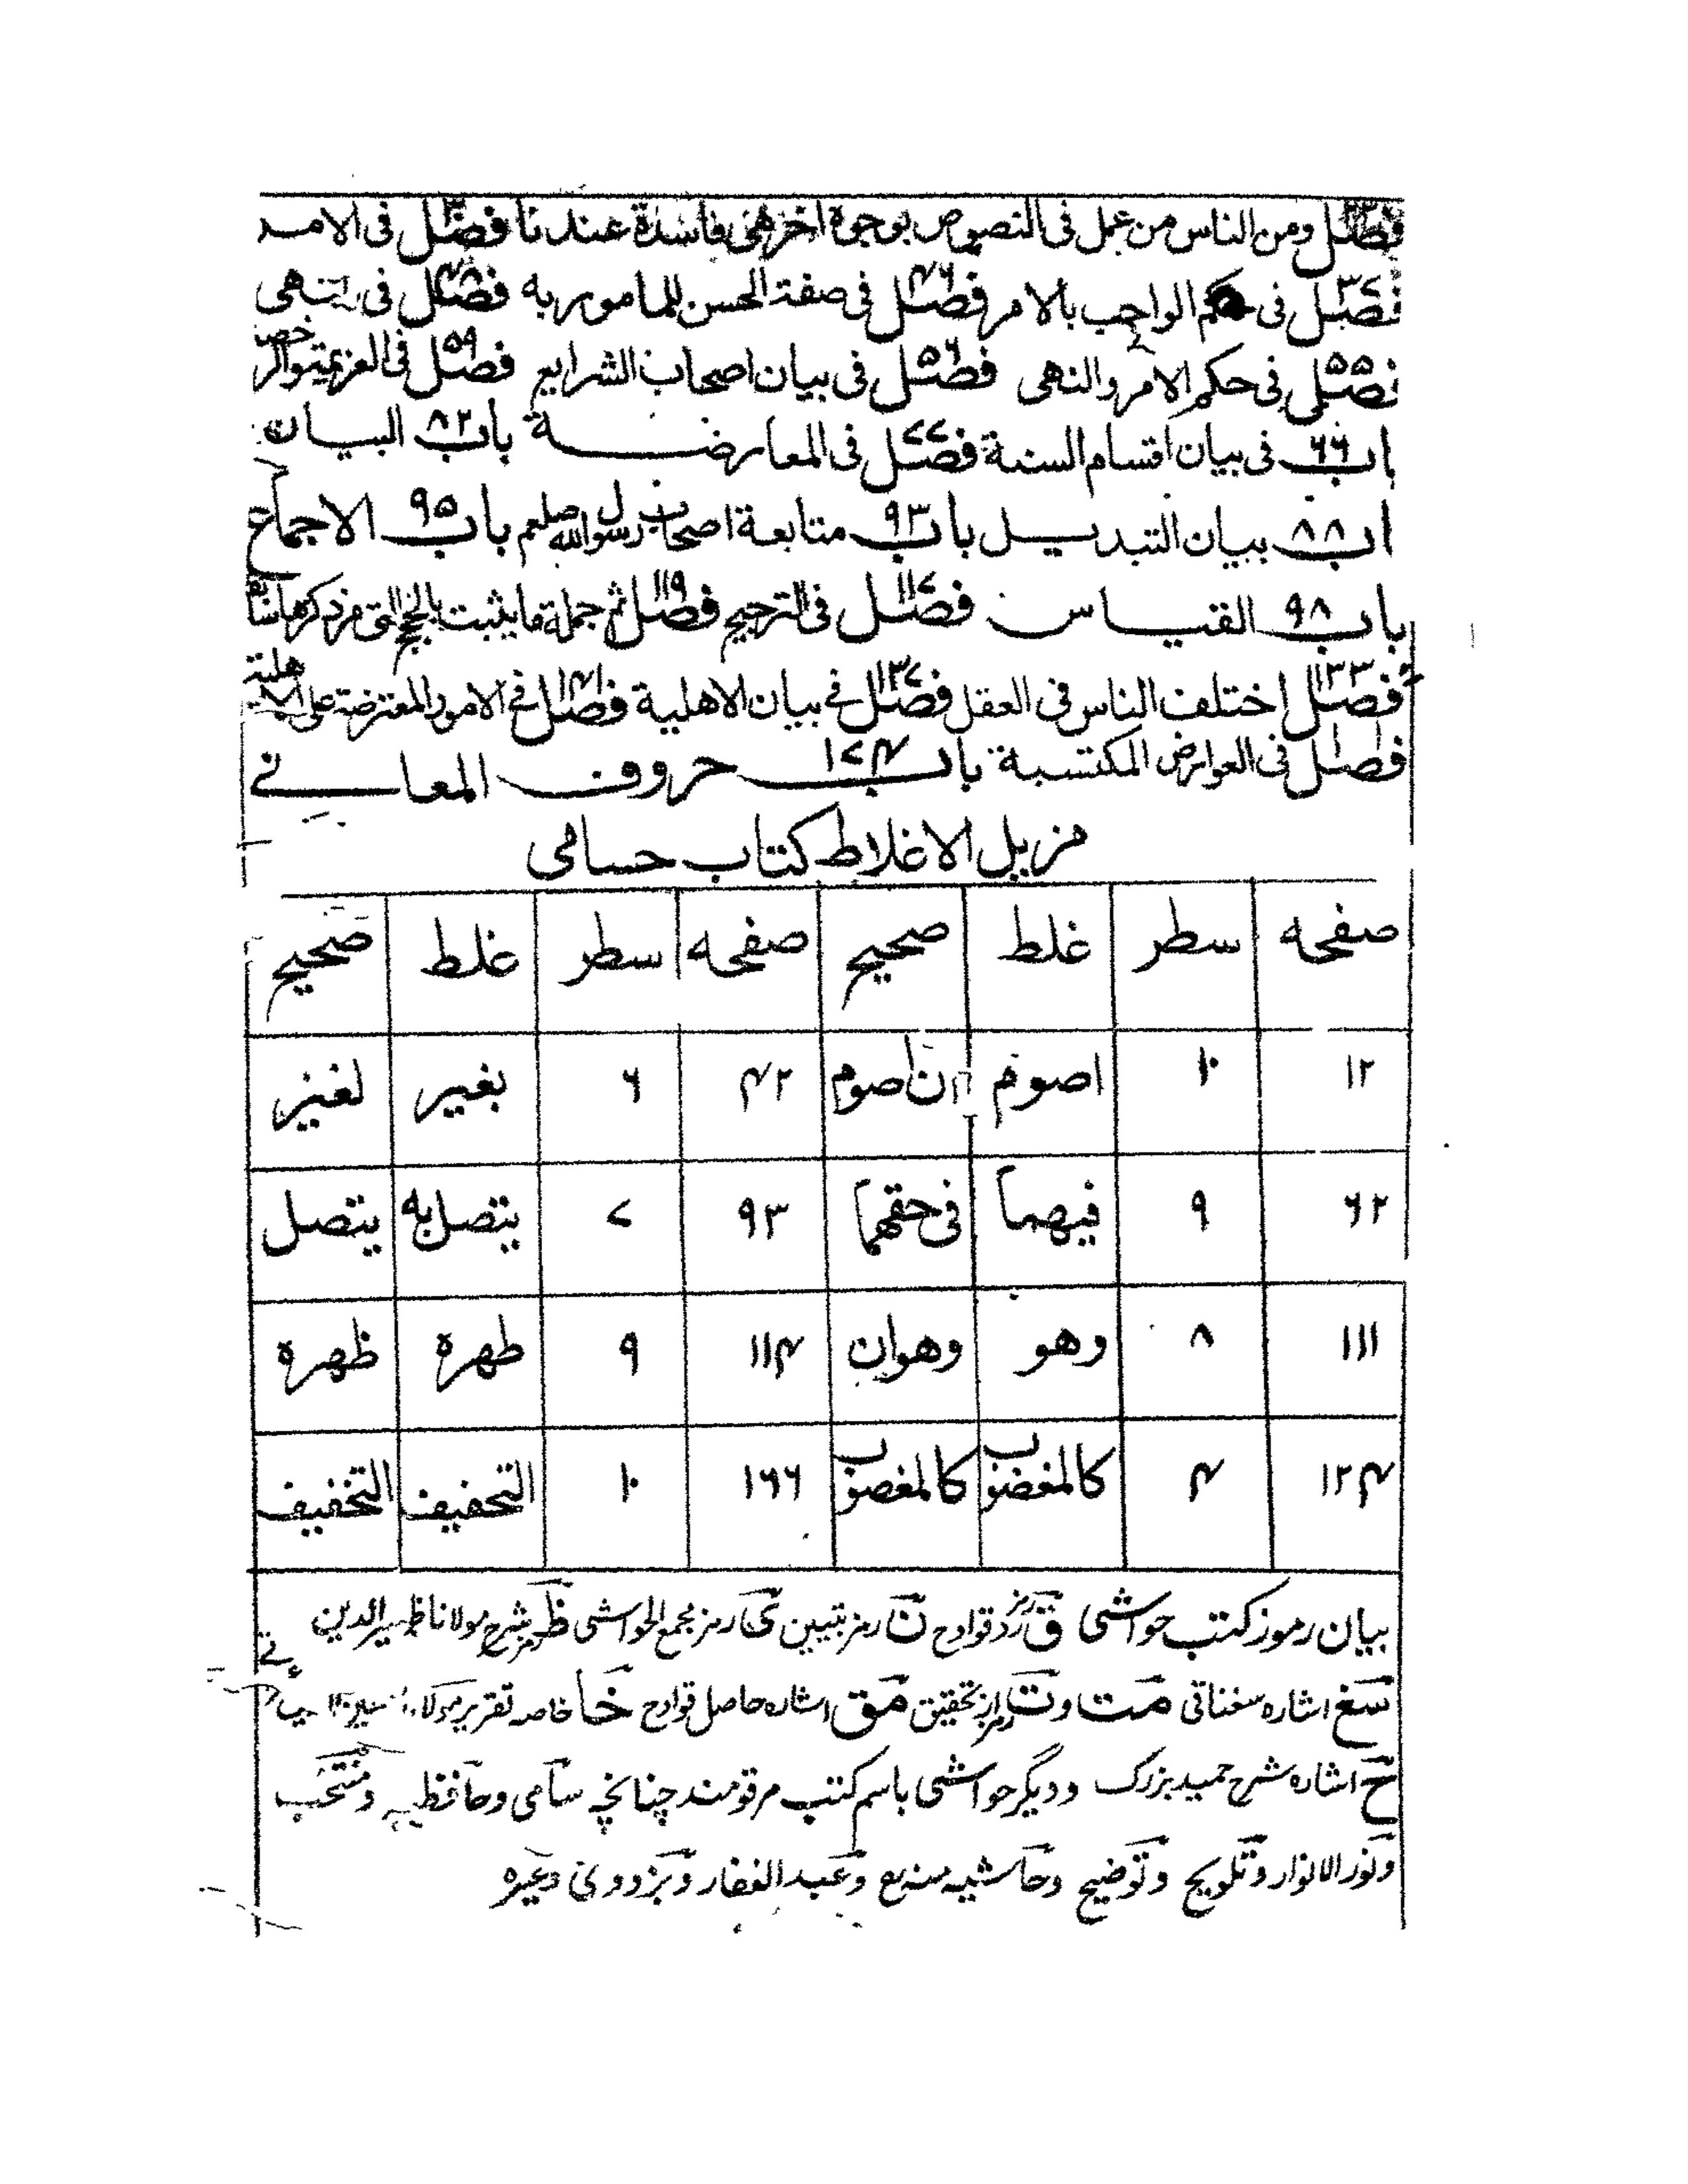 فصل ومن الناس من عمل فى النصوص بوجوه اخر هى فاسدة عندنا فصل فى الامر
فصل ۳۷ فى حكم الواجب بالامر فصل ۴۶ فى صفة الحسن للمامور به فصل ۴۸ فى النهى
فصل ۵۵ فى حكم الامر والنهى فصل ۵۶ فى بيان اصحاب الشرايع فصل ۵۹ فى العزيمة والرخص
باب ۶۶ فى بيان اقسام السنة فصل ۷۷ فى المعارضة باب ۸۲ البيان
باب ۸۸ بيان التبديل باب ۹۳ متابعة اصحاب رسول الله صلعم باب ۹۵ الاجماع
باب ۹۸ القياس فصل ۱۱۷ فى الترجيح فصل ۱۱۹ ثم جملة ما يثبت بالحجج التى مر ذكرها
فصل ۱۳۳ اختلف الناس فى العقل فصل ۱۳۷ فے بيان الاهلية فصل ۱۴۱ فے الامور المعترضة على الاهلية
فصل فى العوارض المكتسبة باب ۱۷۴ حروف المعانے
مزيل الاغلاط كتاب حسامى
صفحه سطر غلط صحيح صفحه سطر غلط صحيح
۱۲ ۱۰ اصوم ان اصوم ۴۲ ۶ بغير لغير
۶۲ ۹ فيهما فى حقهما ۹۳ ۷ يتصل به يتصل
۱۱۱ ۸ وهو وهوان ۱۱۴ ۹ طهره ظهره
۱۲۴ ۴ كالمغضوب كالمغصوب ۱۶۶ ۱۰ التحفيف التخفيف
بيان رموز كتب حواشى ق رمز قوادح ن رمز تبيين ى رمز مجمع الحواشى ظ رمز شرح مولانا ظهير الدين
سغ اشاره سغناقى مت وت رمز از تحقيق مق اشاره حاصل قوادح خا خاصه تقرير مولانا
ح اشاره شرح حميد بزرگ و ديگر حواشى باسم كتب مرقومند چنانچه سامى وحافظيه ومنتخب
ونور الانوار وتلويح وتوضيح وحاشيه منبع وعبد الغفار وبزدوى وغيره